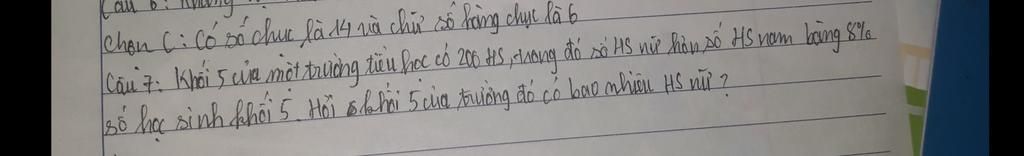 Câu 6:
Chọn C: Có số chục là 14 và chữ số hàng chục là 6
Câu 7: Khối 5 của một trường tiểu học có 200 HS, trong đó số HS nữ hơn số HS nam bằng 8%
số học sinh khối 5. Hỏi khối 5 của trường đó có bao nhiêu HS nữ?